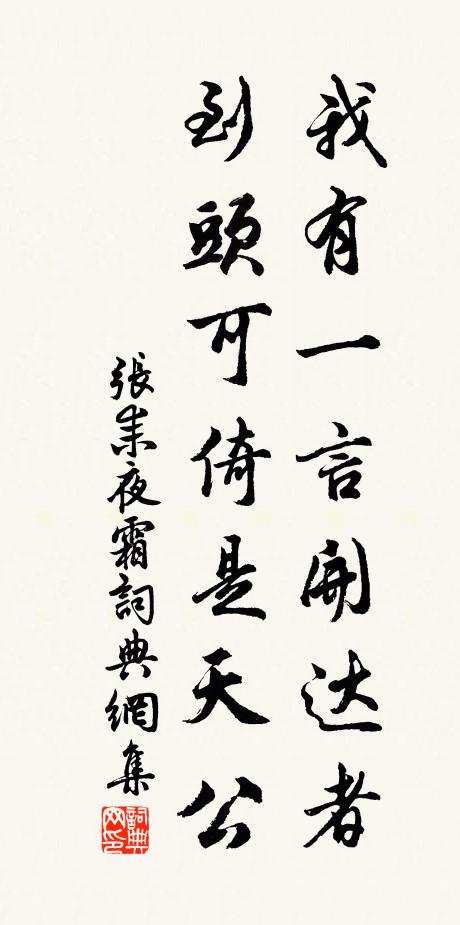 我有一言開达者
到頭可倚是天公
張耒夜霜詞典網集
詞典
网印